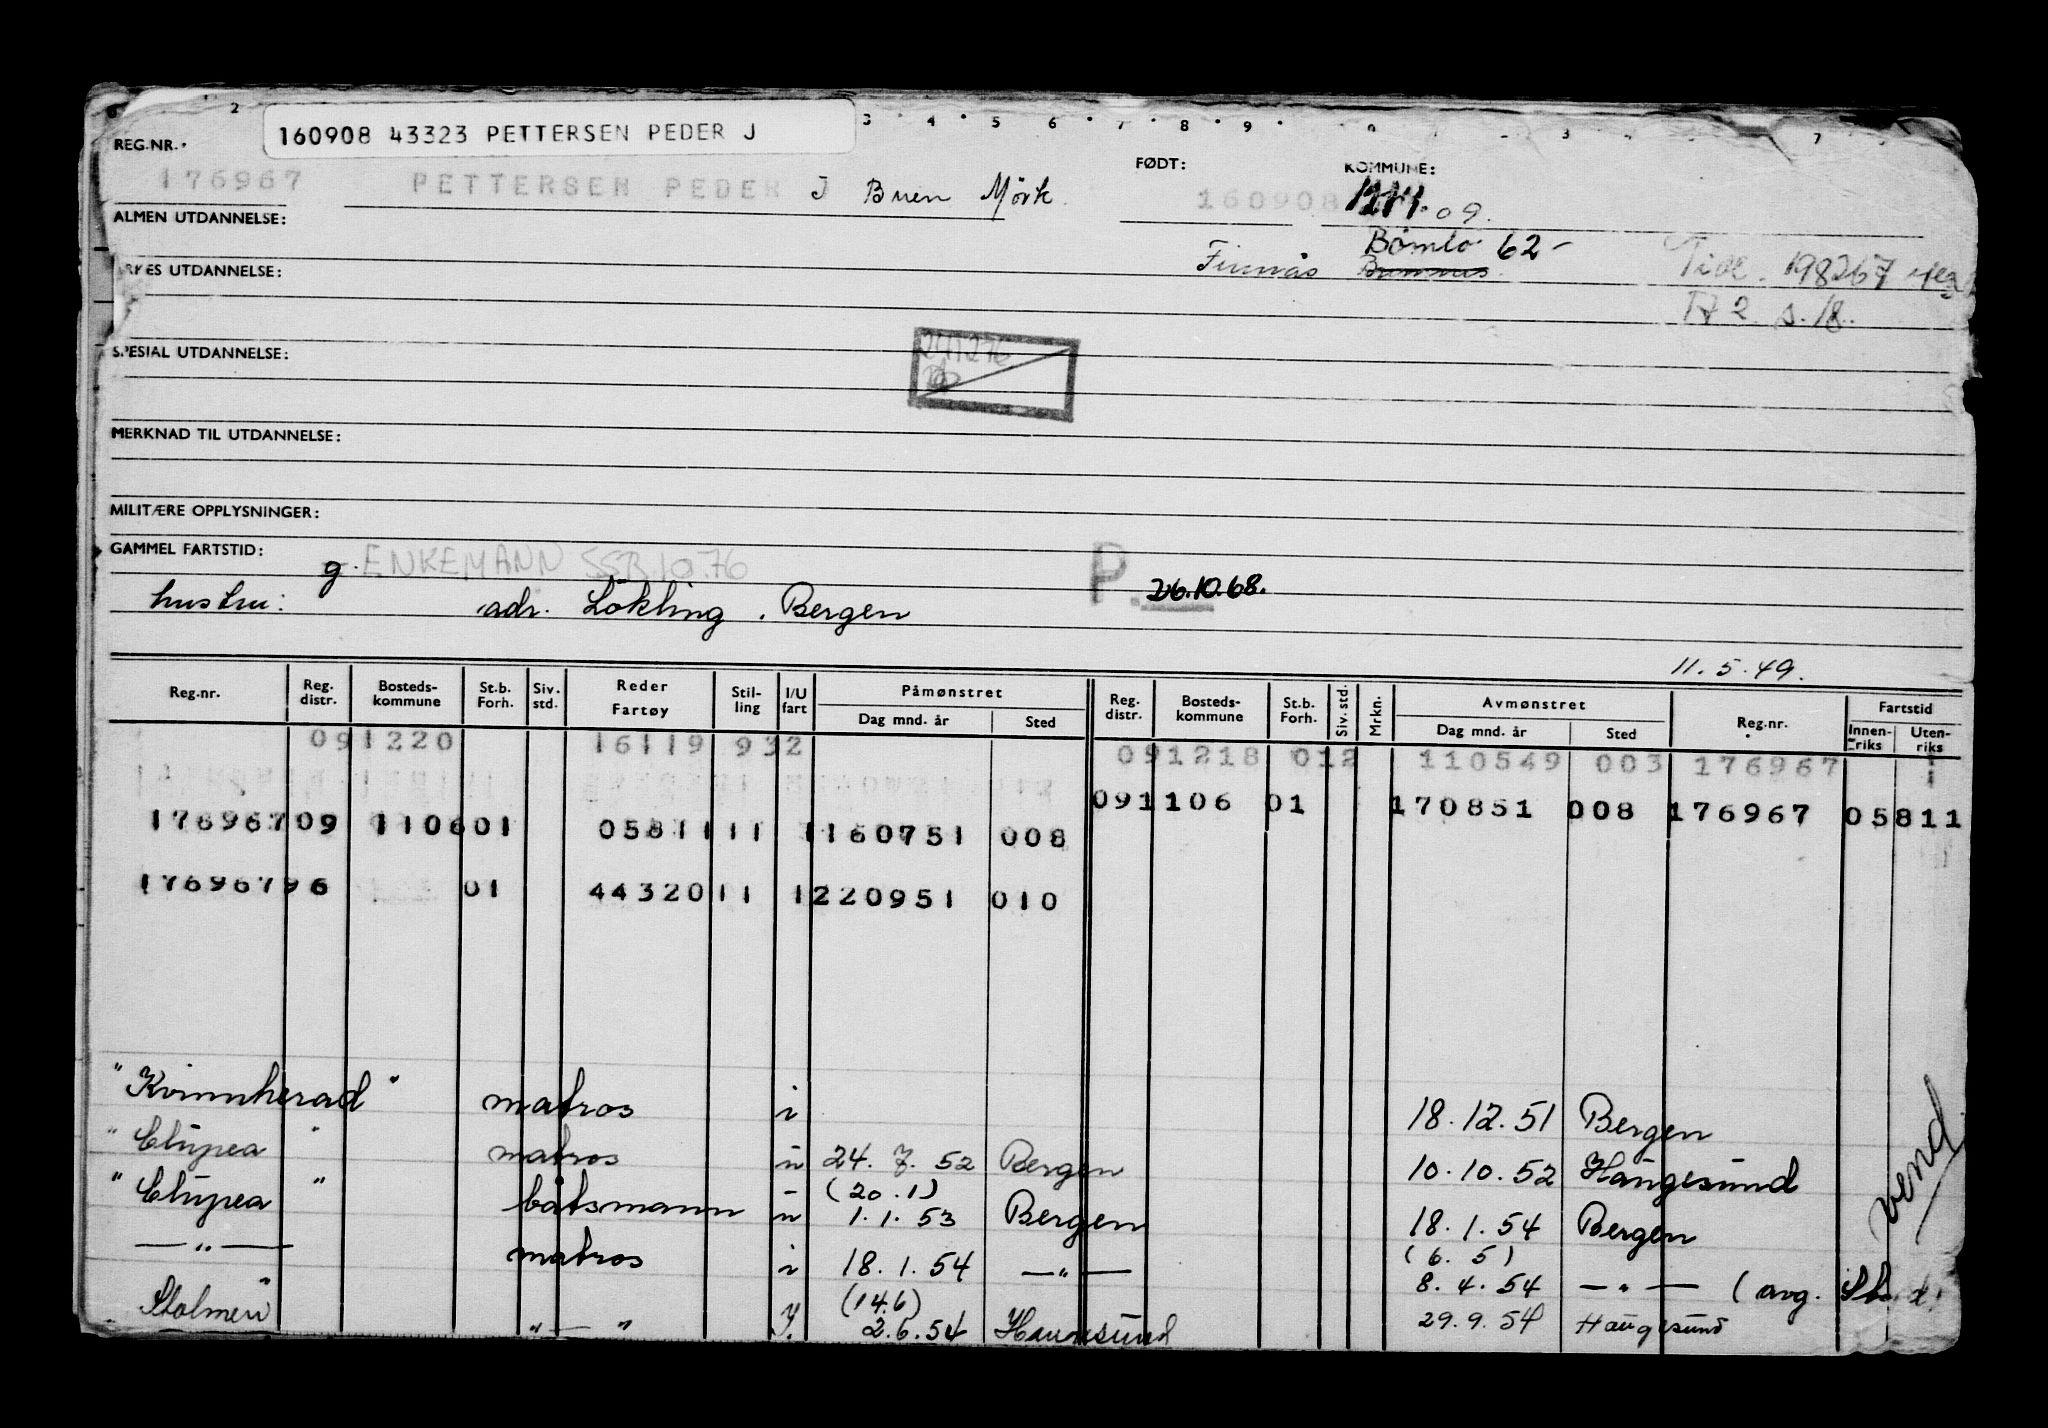 2 3 4 5 6 7 8 9 3 7
160908 43323 PETTERSEN PEDER J
REG.NR. FØDT: KOMMUNE:
176967 PETTERSEN PEDER J Buen Mörk 160908 09.
ALMEN UTDANNELSE:
Bömlo 62 -
Finnås
198267
UTDANNELSE:
2 s. 18.
SPESIAL UTDANNELSE:
MERKNAD TIL UTDANNELSE:
MILITÆRE OPPLYSNINGER:
GAMMEL FARTSTID: g. ENKEMANN SSB.10.76 P. 26.10.68.
hustru: adr. Lökling, Bergen
11.5.49.
Reg.nr. Reg. distr. Bosteds-kommune St.b. Forh. Siv. std. Reder Fartøy Stil-ling I/U fart Påmønstret Dag mnd. år Sted Reg. distr. Bosteds-kommune St.b. Forh. Siv. std. Mrkn. Avmønstret Dag mnd. år Sted Reg.nr. Fartstid Innen-riks Uten-riks
091220 16119 932 091218 012 110549 003 176967
091106 01 170851 008 176967 05811
17696709 110601 0581111 1160751 008
17696796 01 4432011 1220951 010
"Kvinnherad" matros i 18.12.51 Bergen
"Clupea" matros u 24.7.52 Bergen 10.10.52 Haugesund
"Clupea" båtsmann u (20.1) 1.1.53 Bergen 18.1.54 Bergen
—"— matros i 18.1.54 —"— (6.5) 8.4.54 —"— (avg.
Stolmen —"— (14.6) 2.6.54 Haugesund 29.9.54 Haugesund
vend